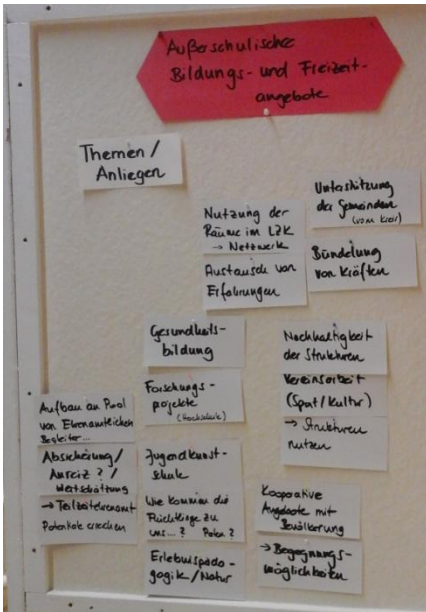 Außerschulische
Bildungs- und Freizeit-
angebote
Themen /
Anliegen
Nutzung der
Räume im LZK
→ Netzwerk
Austausch von
Erfahrungen
Unterstützung
der Gemeinden
(vom Kreis)
Bündelung
von Kräften
Gesundheits-
bildung
Forschungs-
projekte
(Hochschule)
Nachhaltigkeit
der Strukturen
Vereinsarbeit
(Sport/Kultur)
→ Strukturen
nutzen
Aufbau an Pool
von Ehrenamtlichen
Begleiter...
Absicherung/
Anreiz? /
Wertschätzung
→ Teilzeitehrenamt
Potentiale erreichen
Jugendkunst-
schule
Wie kommen die
Flüchtlinge zu
uns...? Paten?
Erlebnispäda-
gogik/Natur
Kooperative
Angebote mit
Bevölkerung
→ Begegnungs-
möglichkeiten